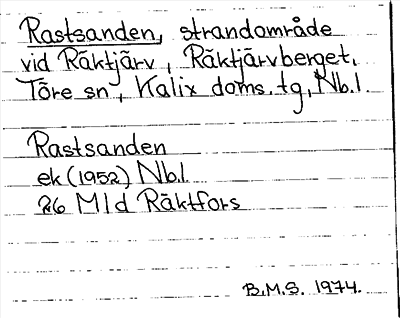 Rastsanden, strandområde
vid Räktjärv, Räktjärvberget,
Töre sn, Kalix doms.tg, Nb.l.
Rastsanden
ek (1952) Nb.l.
26 M 1 d Räktfors
B.M.S. 1974.